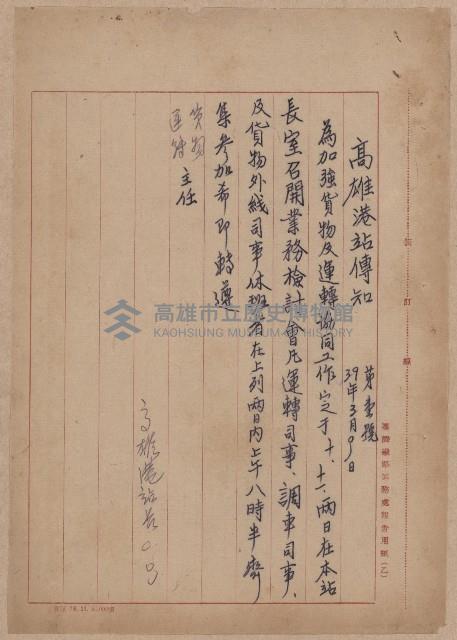 高雄港站傳知
第壹號
39年3月9日
為加強貨物及運轉協同工作定于十、十一、兩日在本站
長室召開業務檢討會凡運轉司事、調車司事、
及貨物外線司事休班者在上列兩日內上午八時半齊
集參加希即轉遵
貨物
運轉
主任
高雄港站長
裝
訂
線
高雄市立歷史博物館
KAOHSIUNG MUSEUM OF HISTORY